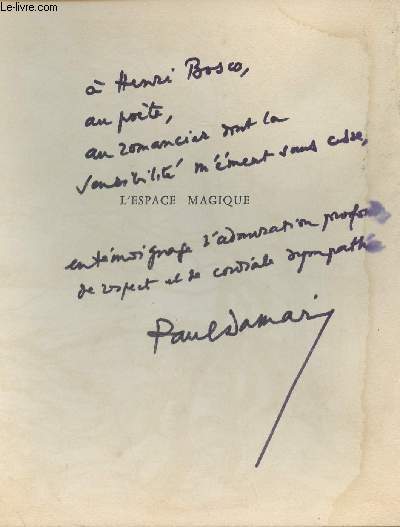 Le-livre.com
à Henri Bosco,
au poète,
au romancier dont la
sensibilité m'émeut sans cesse,
L'ESPACE MAGIQUE
en témoignage d'admiration profonde
de respect et de cordiale sympathie
Paul Damari